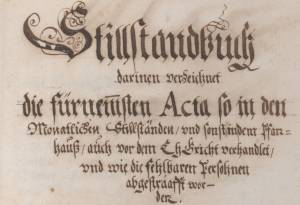 Stillstandbuch
darinen verzeichnet
die fürnemsten Acta so in den
Monatlichen Stillständen/ und sonst indem Pfar-
hauß/ auch vor dem EhGricht verhandlet/
und wie die fehlbaren Persohnen
abgestraafft wor-
den.